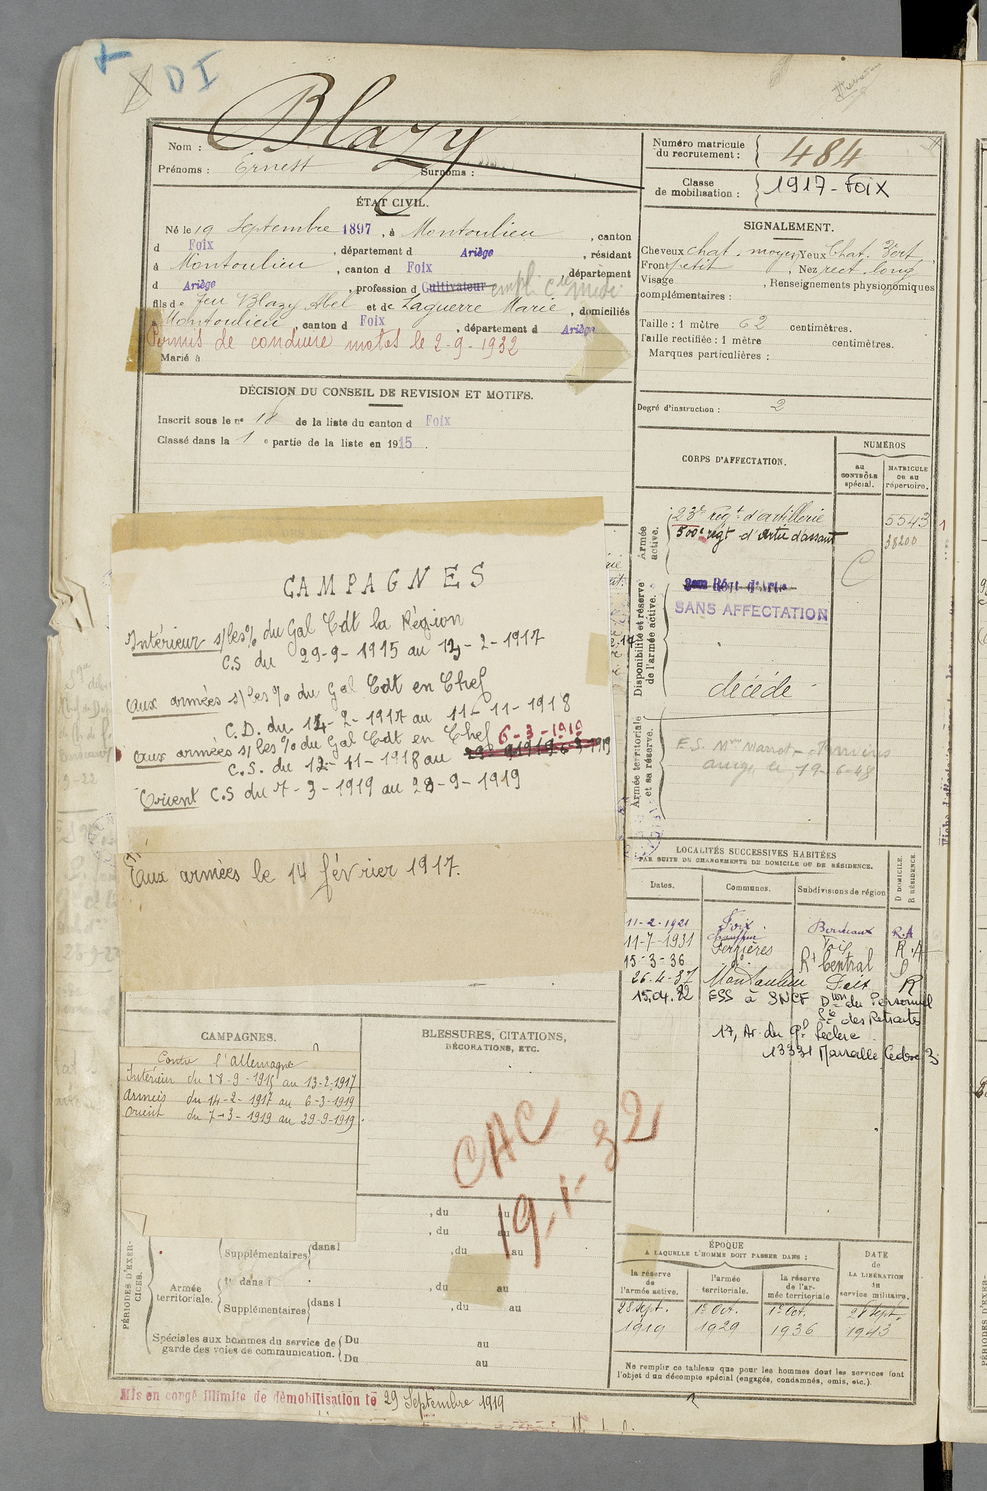 DI
Nom : Blazy
Prénoms : Ernest Surnoms :
Numéro matricule du recrutement : 484
Classe de mobilisation : 1917 - FOIX
ÉTAT CIVIL.
Né le 19 Septembre 1897, à Montoulieu, canton
d Foix, département d Ariège, résidant
à Montoulieu, canton d Foix, département
d Ariège, profession d Cultivateur empl. Cie Midi
fils de feu Blazy Abel et de Laguerre Marie, domiciliés
à Montoulieu, canton d Foix, département d Ariège
Permis de conduire motos le 2-9-1932
Marié à
SIGNALEMENT.
Cheveux chat. moyen Yeux Chat. Vert.
Front petit, Nez rect. long
Visage , Renseignements physionomiques
complémentaires :
Taille : 1 mètre 62 centimètres.
Taille rectifiée : 1 mètre centimètres.
Marques particulières :
Degré d'instruction : 2
DÉCISION DU CONSEIL DE REVISION ET MOTIFS.
Inscrit sous le no 18 de la liste du canton d Foix
Classé dans la 1e partie de la liste en 1915.
CORPS D'AFFECTATION.
NUMÉROS
AU CONTRÔLE spécial.
MATRICULE OU AU répertoire.
Armée active.
23e régt d'artillerie 5543
500e régt d'Artie d'assaut 38200
Disponibilité et réserve de l'armée active.
Régt d'Artie
SANS AFFECTATION
décédé
Armée territoriale et sa réserve.
CAMPAGNES
Intérieur s/les % du Gal Cdt la Région
C.S du 29-9-1915 au 13-2-1917
aux armées s/les % du Gal Cdt en Chef
C.D. du 14-2-1917 au 11-11-1918
aux armées s/les % du Gal Cdt en Chef 6-3-1919
C.S. du 12-11-1918 au
Orient C.S du 7-3-1919 au 29-9-1919
Aux armées le 14 février 1917.
LOCALITÉS SUCCESSIVES HABITÉES
PAR SUITE DE CHANGEMENTS DE DOMICILE OU DE RÉSIDENCE.
Dates. Communes. Subdivisions de région D. DOMICILE. R. RÉSIDENCE.
11-2-1921 Foix Bordeaux R.A
11-7-1931 Ferrières Foix R.A
15-3-36 Rt Central
26-4-37 Montoulieu Foix R
15.04.82 ESS à SNCF Don du Personnel
Sce des Retraites
17, Av. du Gl Leclerc
13331 Marseille Cedex 3
CAMPAGNES.
Contre l'allemagne
Intérieur du 28-9-1915 au 13-2-1917
armées du 14-2-1917 au 6-3-1919
orient du 7-3-1919 au 29-9-1919
BLESSURES, CITATIONS,
DÉCORATIONS, ETC.
CAC
19.1.32
PÉRIODES D'EXERCICES.
, du au
, du au
Supplémentaires dans l , du au
Armée territoriale.
1re dans l , du au
Supplémentaires dans l , du au
Spéciales aux hommes du service de garde des voies de communication.
Du au
Du au
ÉPOQUE
A LAQUELLE L'HOMME DOIT PASSER DANS :
la réserve de l'armée active.
l'armée territoriale.
la réserve de l'armée territoriale
DATE de LA LIBÉRATION du service militaire.
28 Sept. 1919
1er Oct. 1929
1er Oct. 1936
28 Sept. 1943
Ne remplir ce tableau que pour les hommes dont les services font
l'objet d'un décompte spécial (engagés, condamnés, omis, etc.).
Mis en congé illimité de démobilisation le 29 Septembre 1919